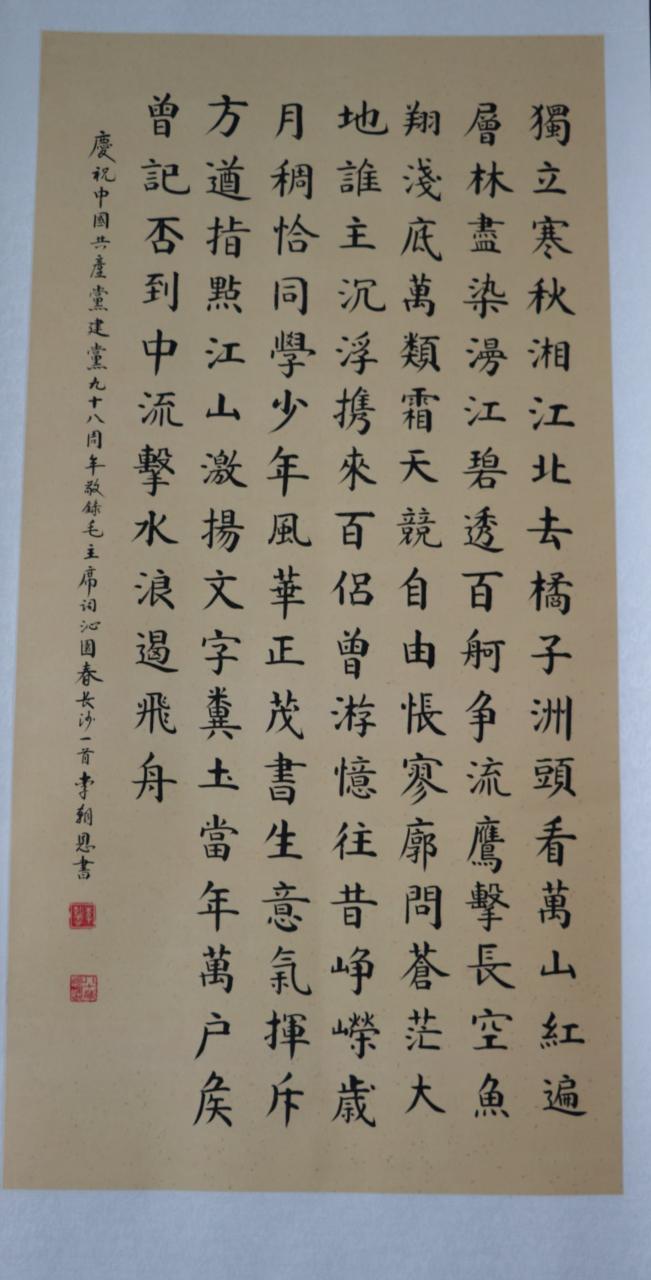 獨立寒秋湘江北去橘子洲頭看萬山紅遍
層林盡染漫江碧透百舸争流鷹擊長空魚
翔淺底萬類霜天競自由悵寥廓問蒼茫大
地誰主沉浮携來百侣曾游憶往昔崢嶸歲
月稠恰同學少年風華正茂書生意氣揮斥
方遒指點江山激揚文字糞土當年萬户矦
曾記否到中流擊水浪遏飛舟
慶祝中國共產黨建黨九十八周年敬錄毛主席词沁園春长沙一首李朝恩書